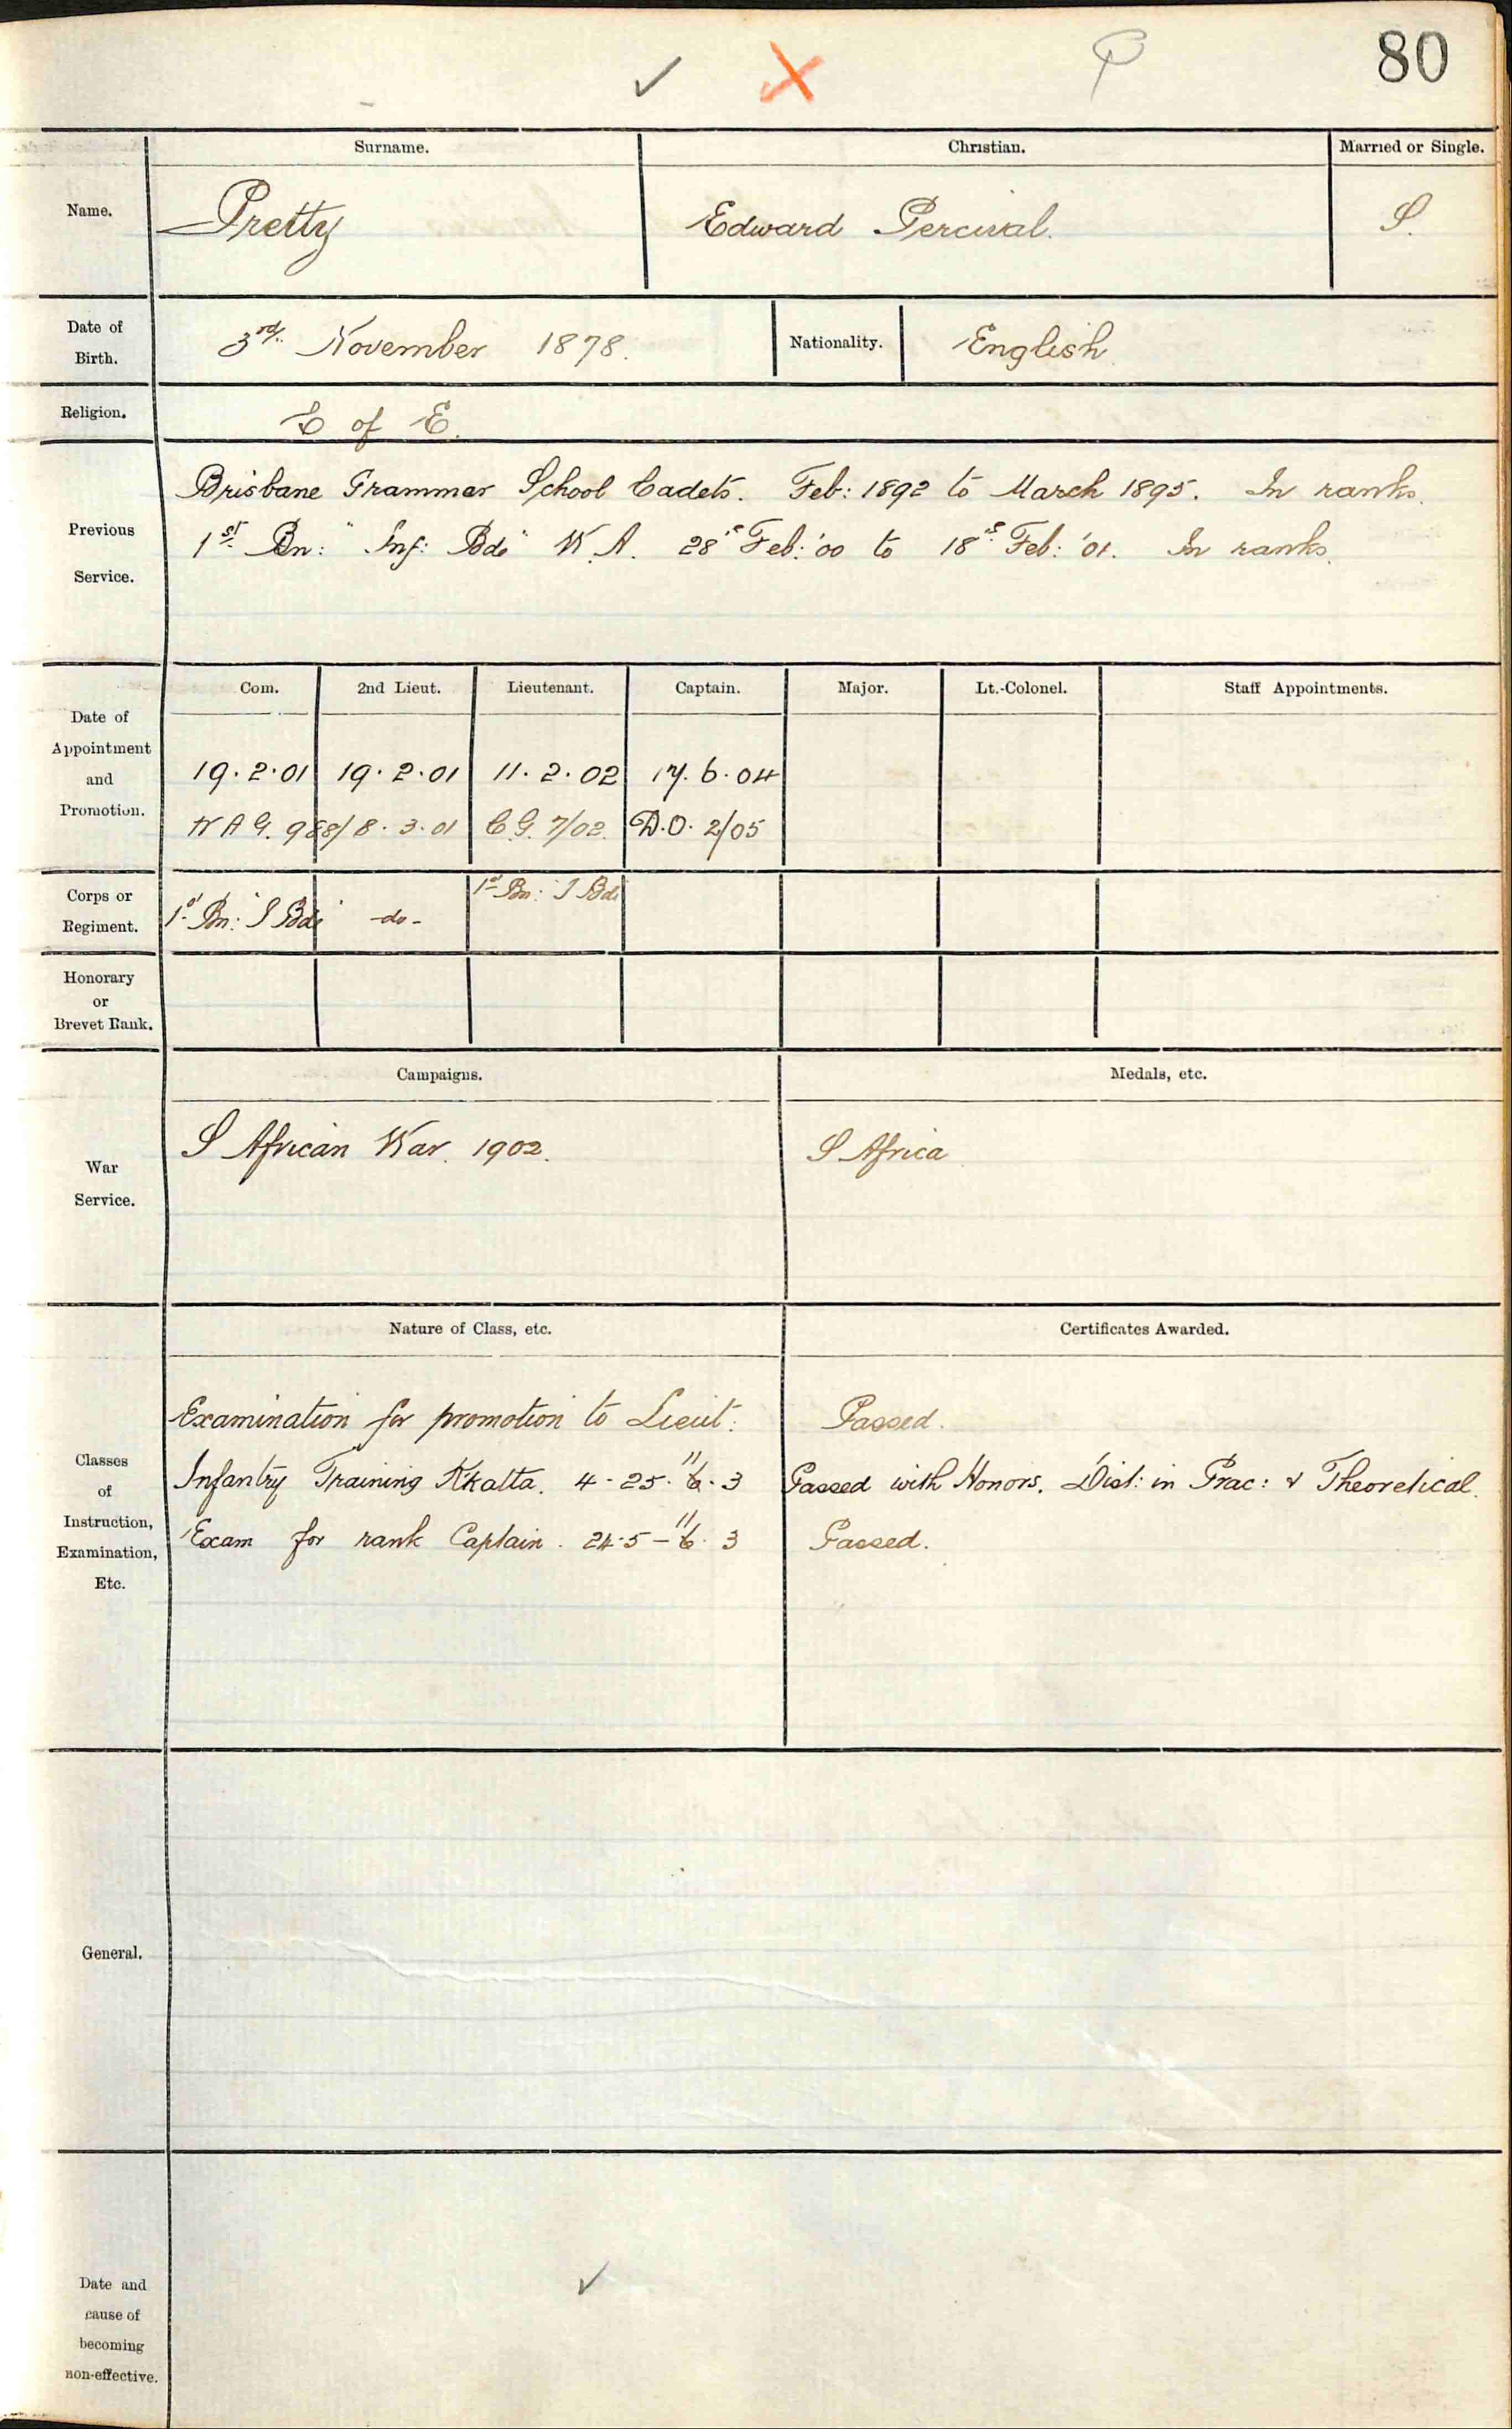 80
Surname. Christian. Married or Single.
Name. Pretty Edward Percival. S.
Date of Birth. 3rd. November 1878. Nationality. English
Religion. C of E.
Previous Service.
Brisbane Grammar School Cadets. Feb: 1892 to March 1895. In ranks.
1st Bn: "Inf: Bde" W.A. 28th Feb: '00 to 18th Feb: '01. In ranks.
Date of Appointment and Promotion.
Com. 2nd Lieut. Lieutenant. Captain. Major. Lt.-Colonel. Staff Appointments.
19.2.01 19.2.01 11.2.02 17.6.04
W A G. 988/8.3.01 C.G. 7/02. D.O. 2/05
Corps or Regiment. 1st Bn: "I Bde" -do- 1st Bn: I Bde
Honorary or Brevet Rank.
War Service.
Campaigns. Medals, etc.
S African War. 1902. S Africa
Classes of Instruction, Examination, Etc.
Nature of Class, etc. Certificates Awarded.
Examination for promotion to Lieut: Passed.
Infantry Training K'katta. 4-25.11/6.3 Passed with Honors. Dist: in Prac: & Theoretical.
Exam for rank Captain. 24.5-11/6.3 Passed.
General.
Date and cause of becoming non-effective.